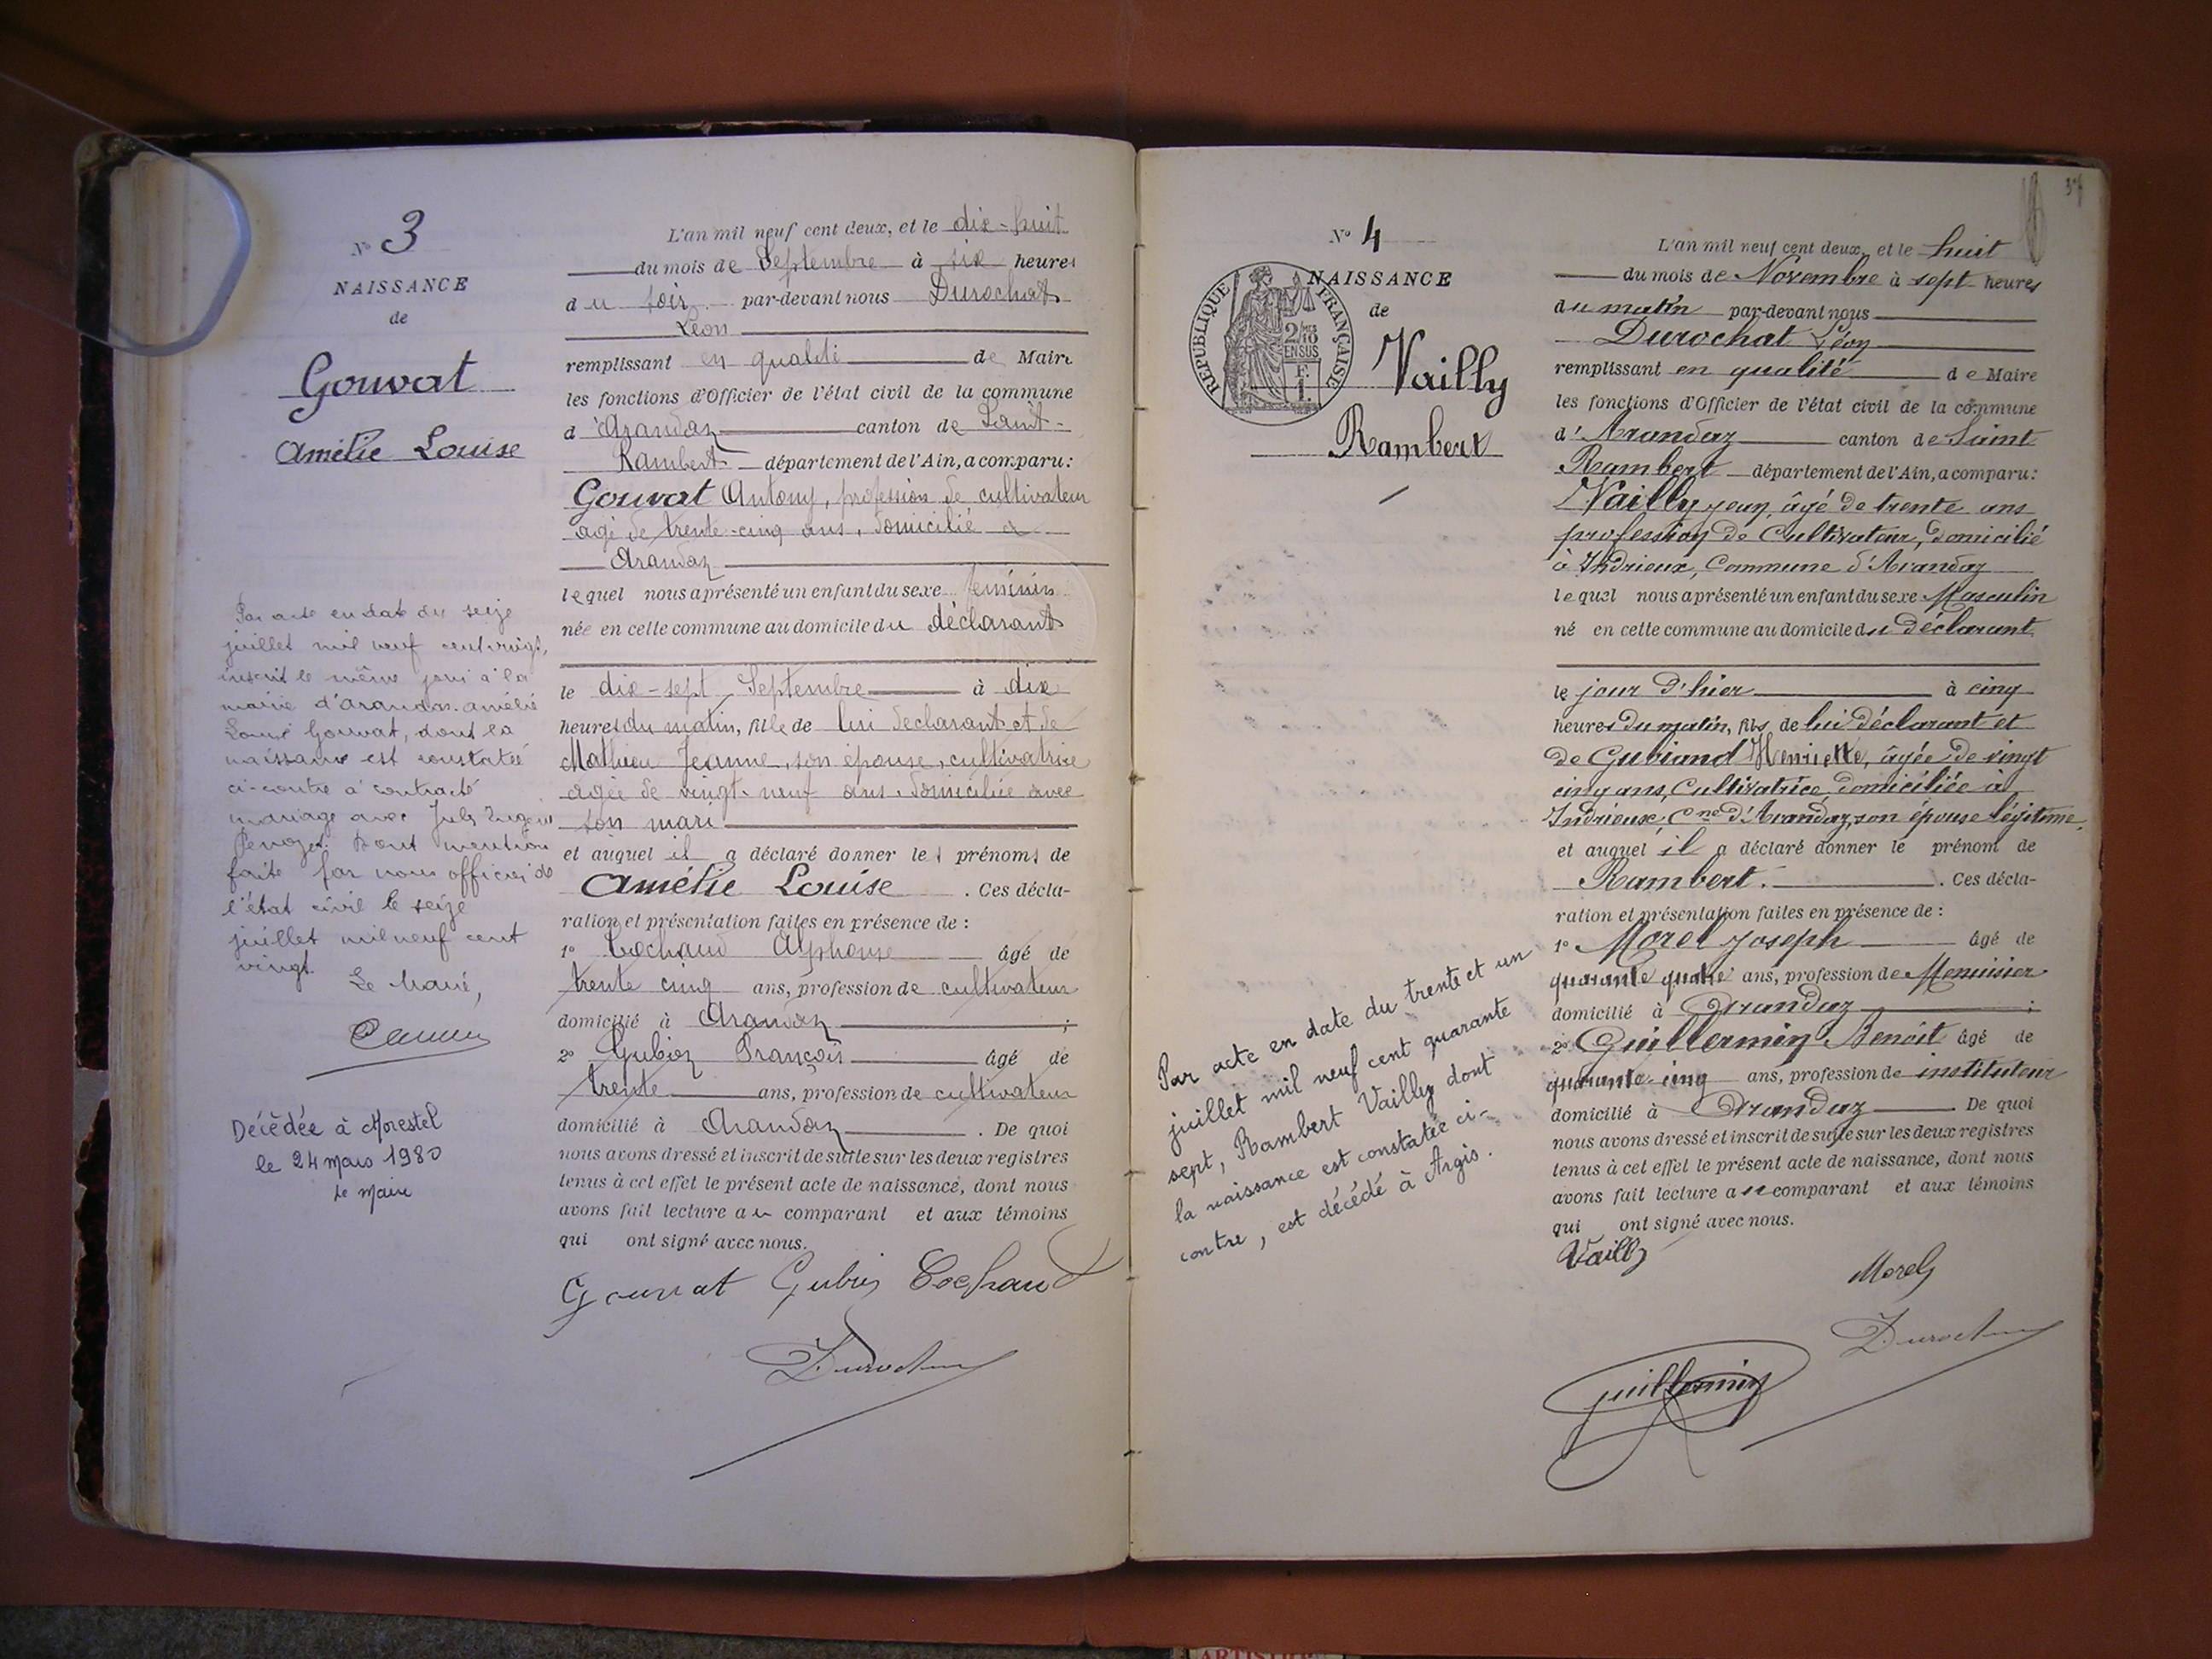 N° 3
NAISSANCE
de
Gouvat
Amélie Louise
Par acte en date du seize
juillet mil neuf cent vingt,
inscrit le même jour à la
mairie d'Arandas. Amélie
Louise Gouvat, dont la
naissance est constatée
ci-contre a contracté
mariage avec Jules Eugène
Dont mention
faite par nous officier de
l'état civil le seize
juillet mil neuf cent
vingt.
Le Maire,
Décédée à Morestel
le 24 mars 1980
Le Maire
L'an mil neuf cent deux, et le dix-huit
du mois de Septembre à six heures
du soir par-devant nous Durochat
Léon
remplissant en qualité de Maire
les fonctions d'Officier de l'état civil de la commune
d'Arandaz canton de Saint-
Rambert département de l'Ain, a comparu :
Gouvat Antony, profession de cultivateur
agé de trente-cinq ans, domicilié à
Arandaz
lequel nous a présenté un enfant du sexe féminin
née en cette commune au domicile du déclarant
le dix-sept Septembre à dix
heures du matin, fille de lui déclarant et de
Mathieu Jeanne, son épouse, cultivatrice
agée de vingt-neuf ans, domiciliée avec
son mari
et auquel il a déclaré donner les prénoms de
Amélie Louise . Ces décla-
ration et présentation faites en présence de :
1° Cochaud Alphonse âgé de
trente cinq ans, profession de cultivateur
domicilié à Arandaz ;
2° Gubian François âgé de
trente ans, profession de cultivateur
domicilié à Arandaz . De quoi
nous avons dressé et inscrit de suite sur les deux registres
tenus à cet effet le présent acte de naissance, dont nous
avons fait lecture au comparant et aux témoins
qui ont signé avec nous.
Gouvat Cochaud
Durochat
N° 4
NAISSANCE
de
RÉPUBLIQUE FRANÇAISE
2/10
EN SUS
Vailly
Rambert
Par acte en date du trente et un
juillet mil neuf cent quarante
sept, Rambert Vailly dont
la naissance est constatée ci-
contre, est décédé à Argis.
L'an mil neuf cent deux, et le huit
du mois de Novembre à sept heures
du matin par-devant nous
Durochat Léon
remplissant en qualité de Maire
les fonctions d'Officier de l'état civil de la commune
d'Arandaz canton de Saint
Rambert département de l'Ain, a comparu :
Vailly jean, âgé de trente ans
profession de Cultivateur, domicilié
à Indrieux, Commune d'Arandaz
lequel nous a présenté un enfant du sexe Masculin
né en cette commune au domicile du déclarant
le jour d'hier à cinq
heures du matin, fils de lui déclarant et
de Henriette, âgée de vingt
cinq ans, Cultivatrice, domiciliée à
Indrieux, Cne d'Arandaz, son épouse légitime,
et auquel il a déclaré donner le prénom de
Rambert. . Ces décla-
ration et présentation faites en présence de :
1° Morel Joseph âgé de
quarante quatre ans, profession de Menuisier
domicilié à Arandaz ;
2° Guillermin Benoît âgé de
quarante-cinq ans, profession de instituteur
domicilié à Arandaz . De quoi
nous avons dressé et inscrit de suite sur les deux registres
tenus à cet effet le présent acte de naissance, dont nous
avons fait lecture au comparant et aux témoins
qui ont signé avec nous.
Vailly
Morel
Durochat
Guillermin